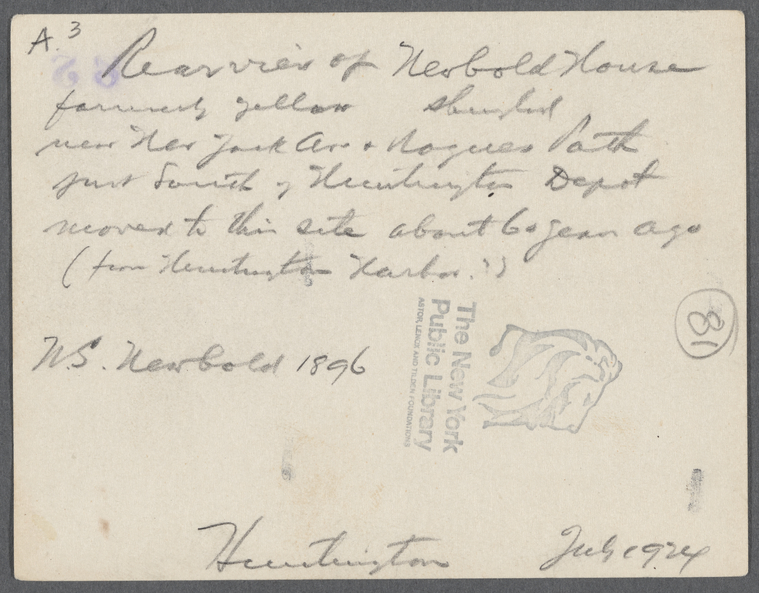 A.3
Rear view of Newbold House
formerly yellow shingled
near New York Ave + Rogues Path
just South of Huntington Depot
moved to this site about 60 years ago
(from Huntington Harbor.?)
81
The New York
Public Library
ASTOR, LENOX AND TILDEN FOUNDATIONS
W.S. Newbold 1896
Huntington July 1924